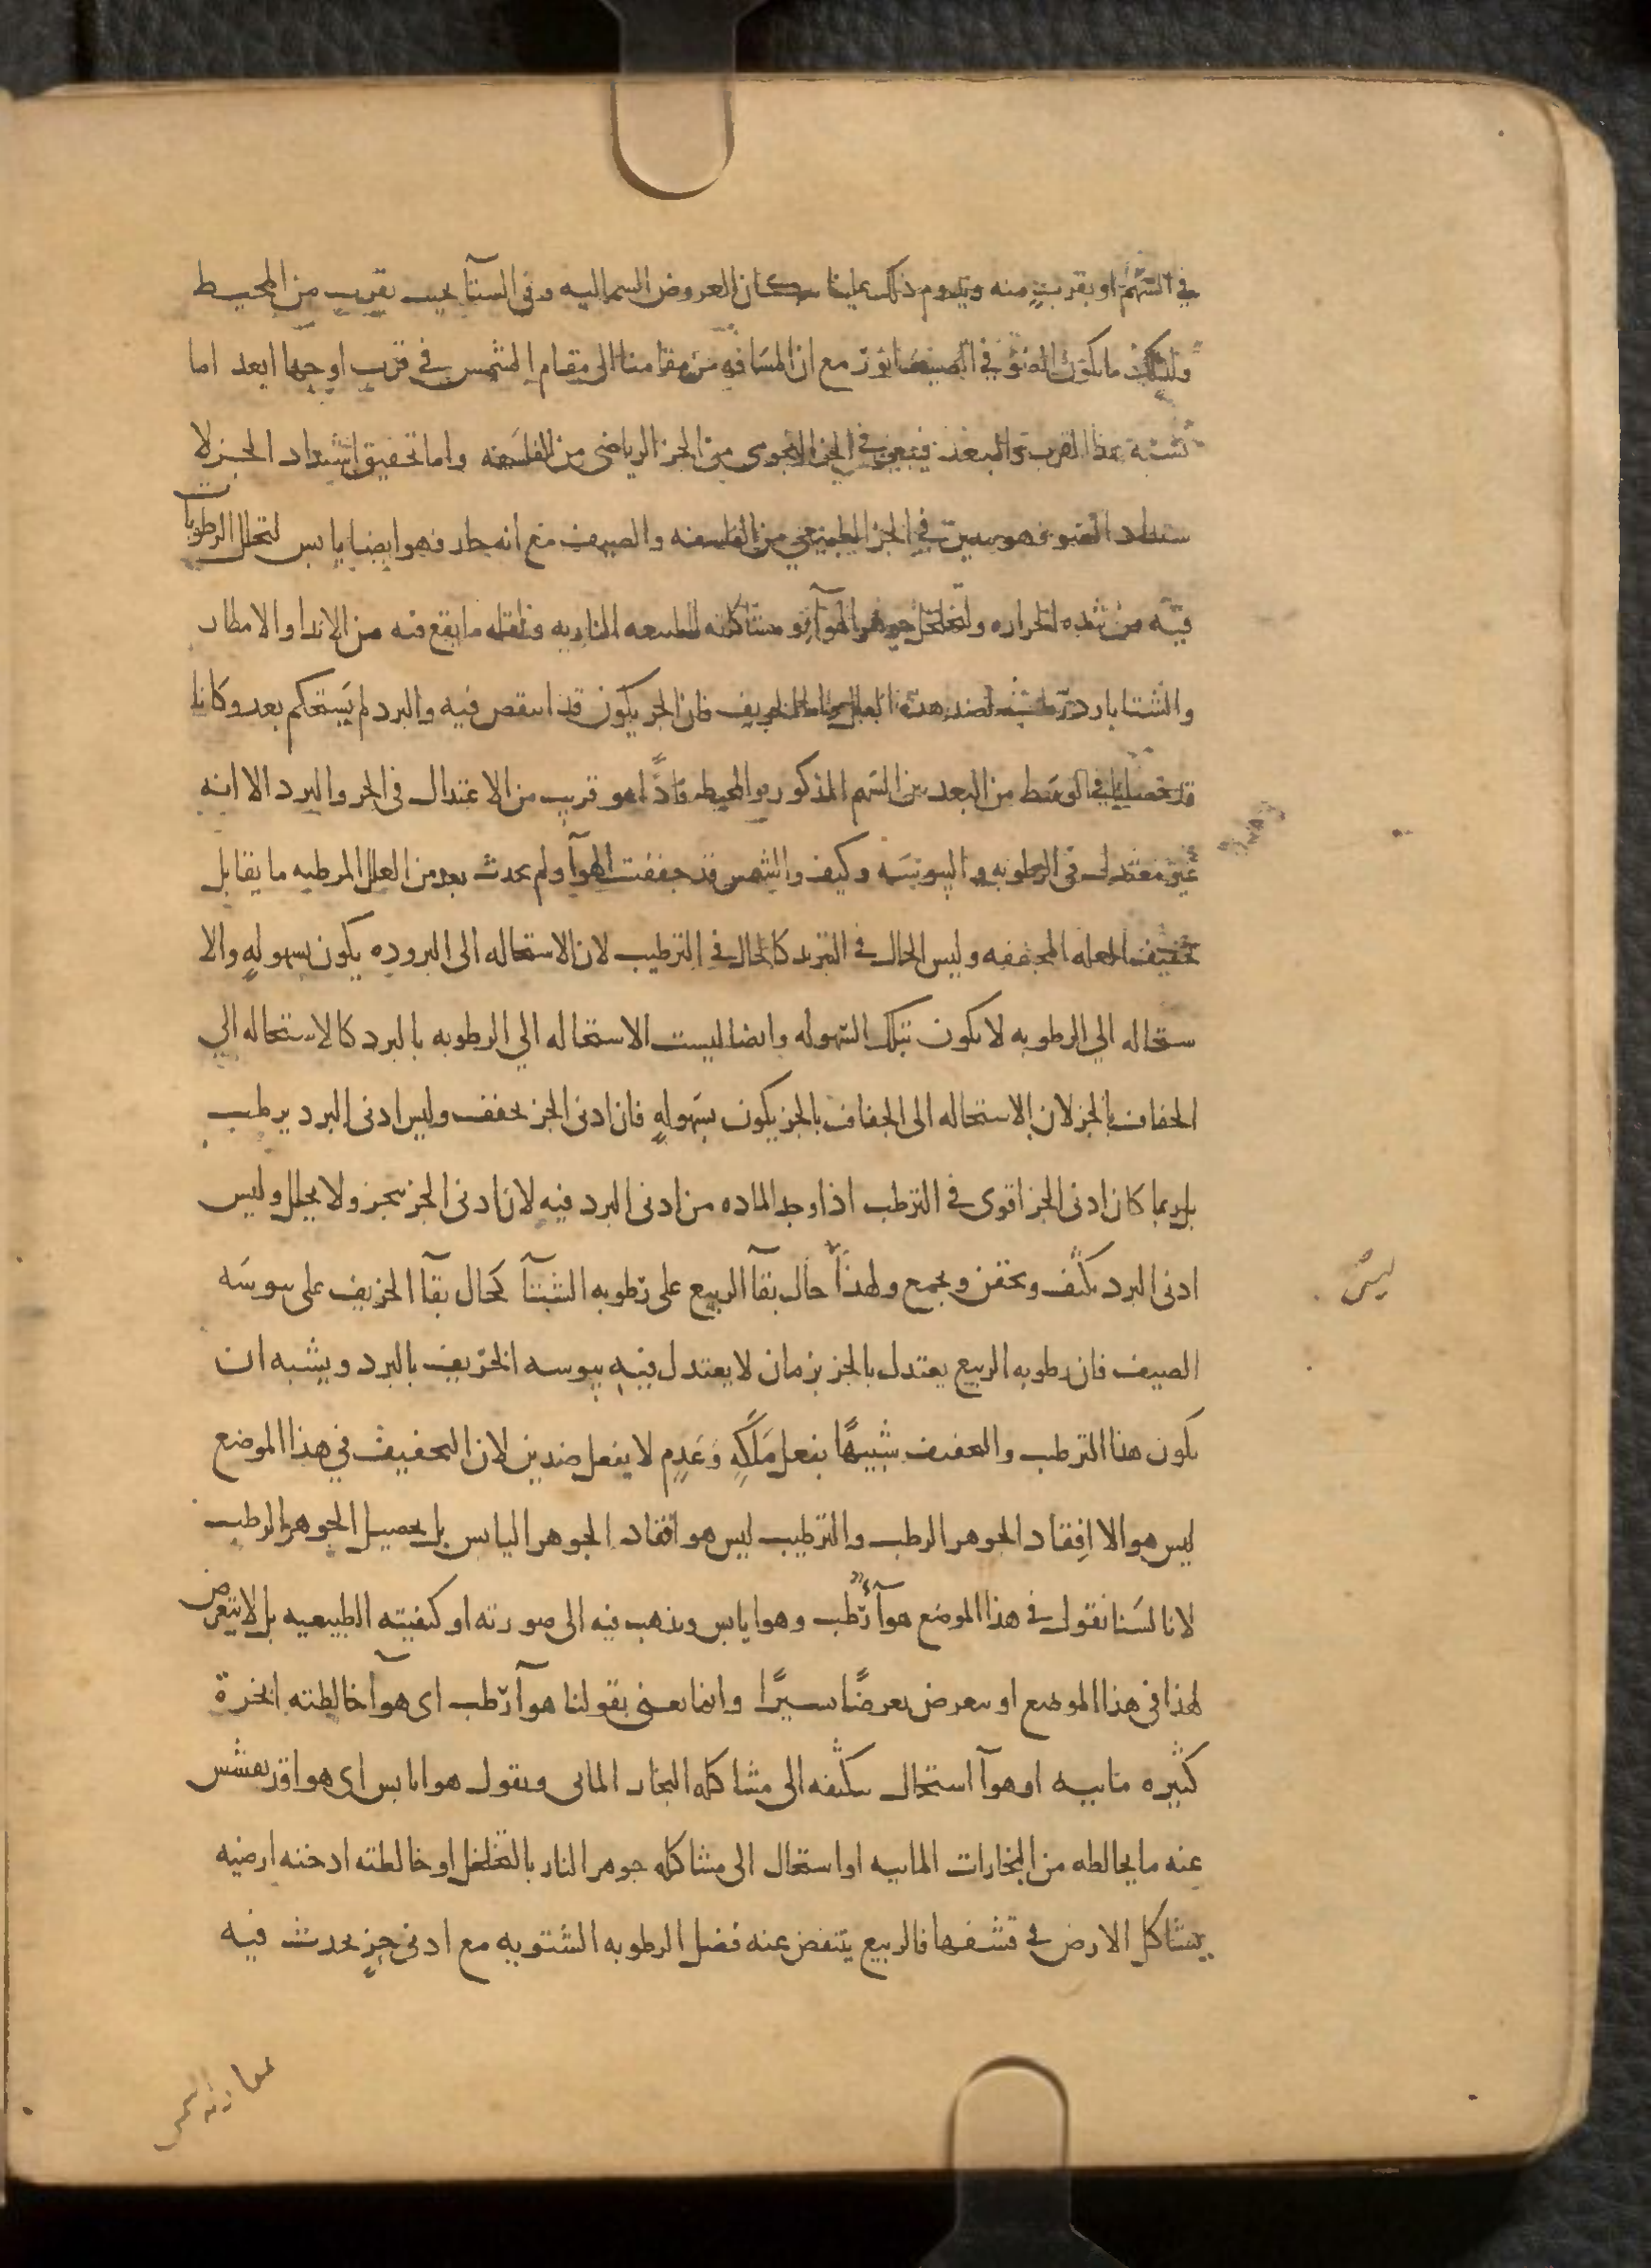 في السهم او بقرب منه ويدوم ذلك علينا سكان العروض الشماليه وفى الشتآ بحيث يقرب من المحيط
ولذلك ما يكون الضوء في الصيف انور مع ان المسافه من مقامنا الى مقام الشمس في قرب اوجها ابعد اما
نسبة هذا القرب والبعد فيتبين في الجز النجومى من الجز الرياضى من الفلسفه واما تحقيق اشتداد الحر لا
شتداد الضوء فهو يتبين في الجز الطبيعي من الفلسفه والصيف مع انه حار فهو ايضا يابس لتحلل الرطوبات
فيه من شده الحراره ولتخلخل جوهر الهوآ و مشاكلته للطبيعه الناريه ولقله ما يقع فيه من الاندا والامطار
والشتا بارد رطب لضد هذه العلل واما الخريف فان الحر يكون قد انتقص فيه والبرد لم يستحكم بعد وكانا
قد حصلنا في الوسط من البعد بين السهم المذكور والمحيط فاذا هو قريب من الاعتدال فى الحر والبرد الا انه
غير معتدل فى الرطوبه و اليبوسه وكيف والشمس قد جففت الهوآ ولم يحدث بعد من العلل المرطبه ما يقابل
تجفيف العله المجففه وليس الحال في التبريد كالحال في الترطيب لان الاستحاله الى البروده يكون بسهولهٍ والا
ستحاله الي الرطوبه لا يكون بتلك السهوله وايضا ليست الاستحاله الي الرطوبه بالبرد كالاستحاله الي
الجفاف بالحر لان الاستحاله الى الجفاف بالحر يكون بسهولهٍ فان ادنى الحر يجفف وليس ادنى البرد يرطب
بل ربما كان ادنى الحر اقوى في الترطيب اذا وجد الماده من ادنى البرد فيه لان ادنى الحر يبخر ولا يحلل وليس
ادنى البرد يكثف ويحقن ويجمع ولهذا حال بقآ الربيع على رطوبه الشتآ كحال بقآ الخريف على يبوسه
ليس
الصيف فان رطوبه الربيع يعتدل بالحر بزمان لا يعتدل فيه يبوسه الخريف بالبرد ويشبه ان
يكون هذا الترطيب والتجفيف شبيهًا بفعل مَلَكهٍ وعَدمٍ لا بفعل ضدين لان التجفيف في هذا الموضع
ليس هو الا افقاد الجوهر الرطب والترطيب ليس هو افقاد الجوهر اليابس بل تحصيل الجوهر الرطب
لانا لسنا نقول في هذا الموضع هوآ رطب وهوا يابس ونذهب فيه الى صورته او كيفيته الطبيعيه بل لا نتعرض
لهذا فى هذا الموضع او نتعرض تعرضًا يسيرًا وانما نعنى بقولنا هوآ رطب اى هوآ خالطته ابخرة
كثيره مائيه او هوآ استحال بتكثفه الى مشاكله البخار المائى ونقول هوا يابس اى هوا قد يفشش
عنه ما يخالطه من البخارات المائيه او استحال الى مشاكله جوهر النار بالتخلخل او خالطته ادخنه ارضيه
يشاكل الارض في تنشفها فالربيع ينتفض عنه فضل الرطوبه الشتويه مع ادنى حرٍ يحدث فيه